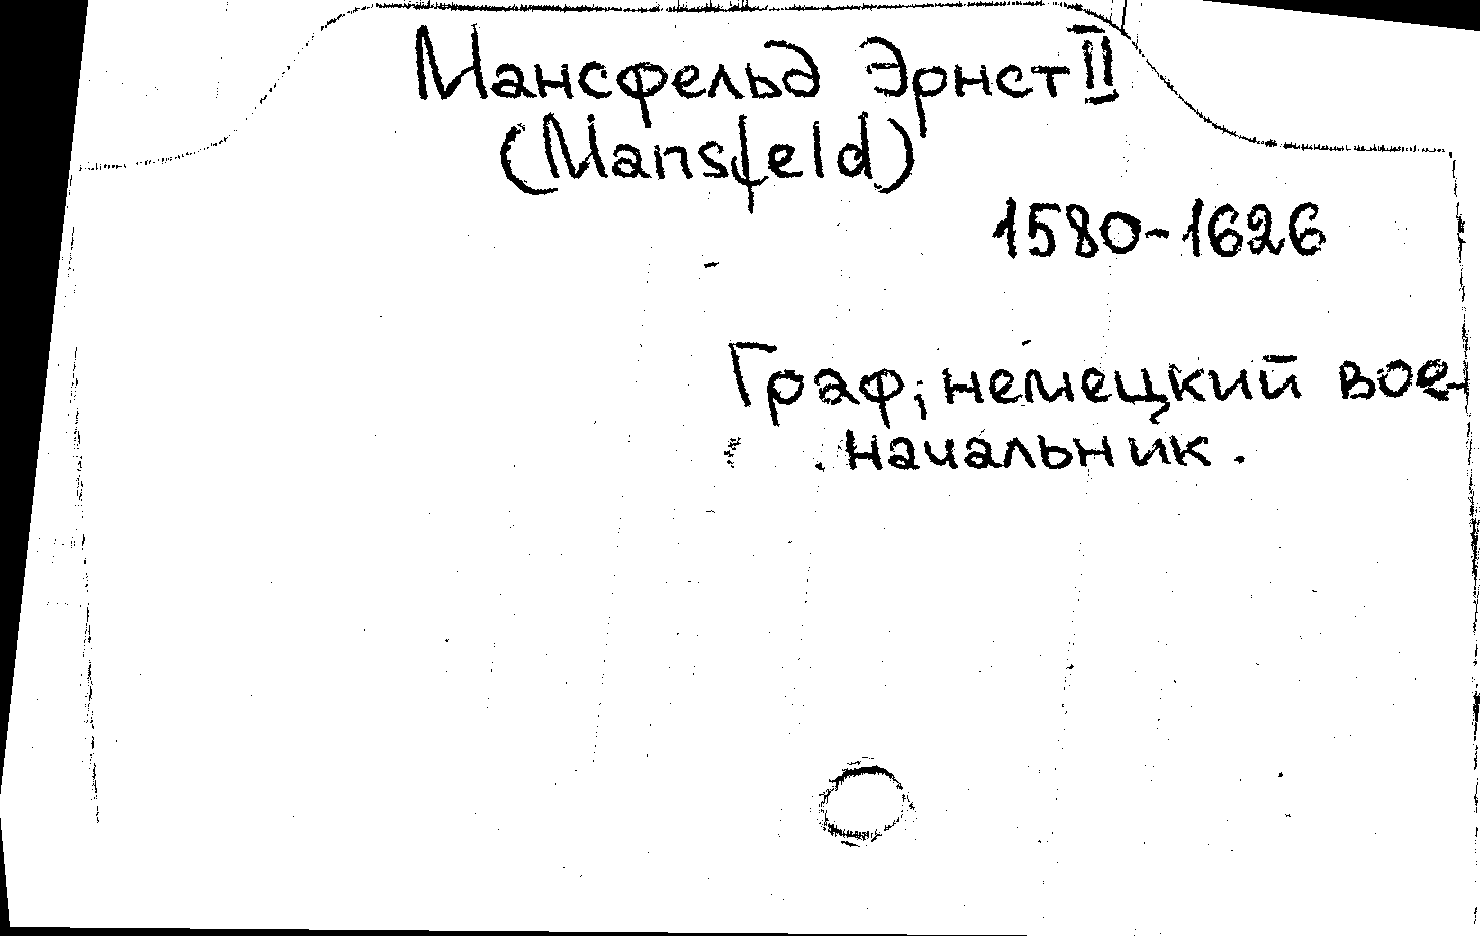 Мансфельд Эрнст II
(Mansfeld)
1580-1626
Граф, немецкий вое-
начальник.